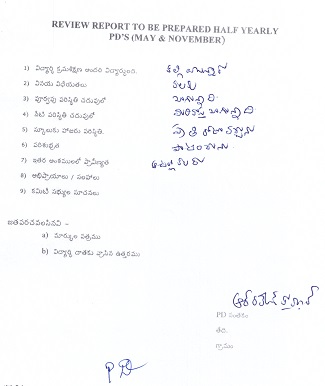 REVIEW REPORT TO BE PREPARED HALF YEARLY
PD'S (MAY & NOVEMBER)
1) విద్యార్థి క్రమశిక్షణ అందరి విద్యార్థులందు. కల్గి వున్నారు
2) వినయ విధేయతలు కలవు
3) పూర్వపు పరిస్థితి చదువులో బాగున్నది
4) నేటి పరిస్థితి చదువులో బాగున్నది
5) స్కూలుకు హాజరు పరిస్థితి.
6) పరిశుభ్రత
7) ఇతర అంశములలో ప్రావీణ్యత ఆటల్లో
8) అభిప్రాయాలు / సలహాలు
9) కమిటీ సభ్యుల సూచనలు
జతపరచవలసినవి –
a) మార్కుల పత్రము
b) విద్యార్థి దాతకు వ్రాసిన ఉత్తరము
PD సంతకం
తేది.
గ్రామం
PD